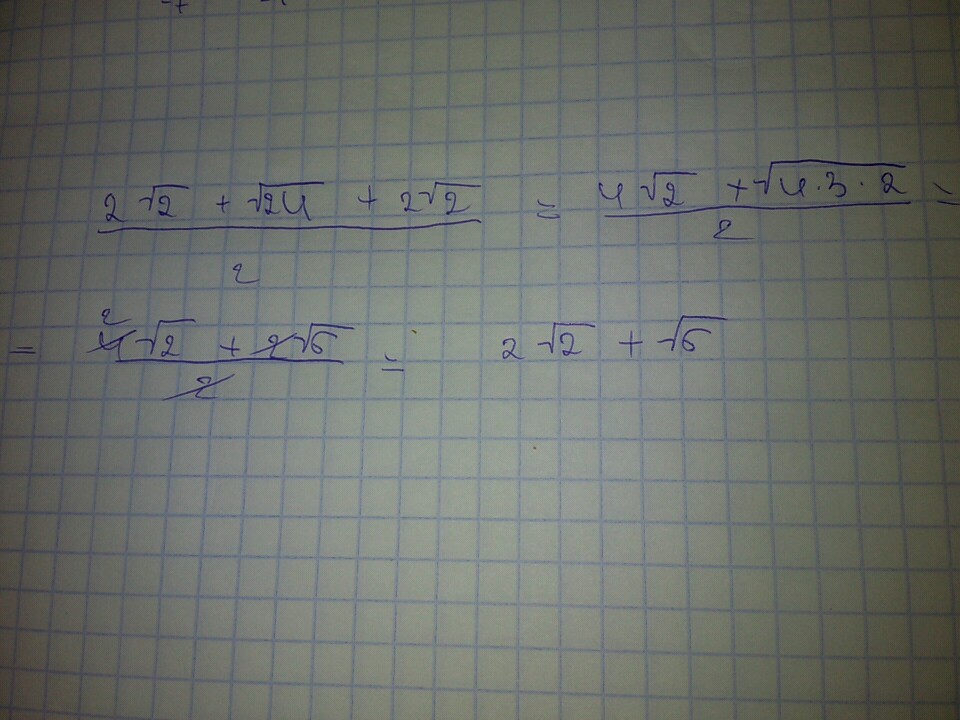 2√2 + √24 + 2√2 / 2 = 4√2 + √4·3·2 / 2 =
= 2 4√2 + 2√6 / 2 = 2√2 + √6